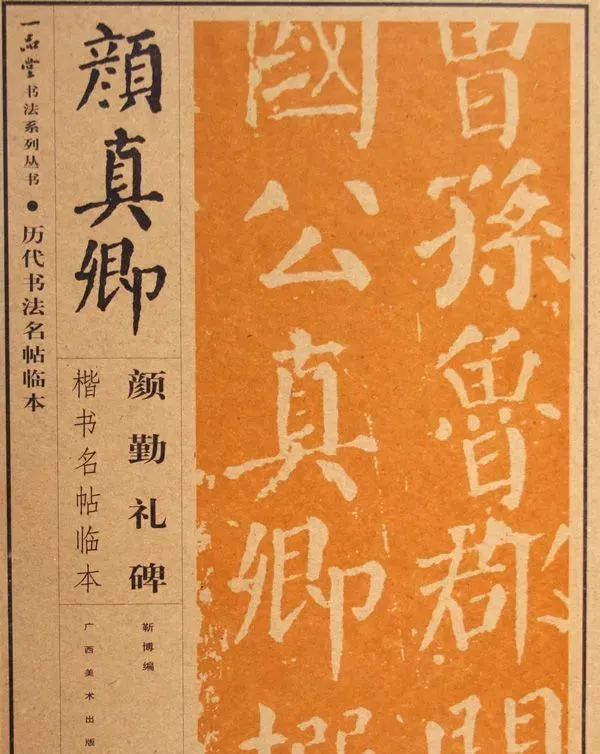 一品堂书法系列丛书●历代书法名帖临本
顏真卿
颜勤礼碑
楷书名帖临本
靳博编
广西美术出版
曾孫魯郡開
國公真卿撰